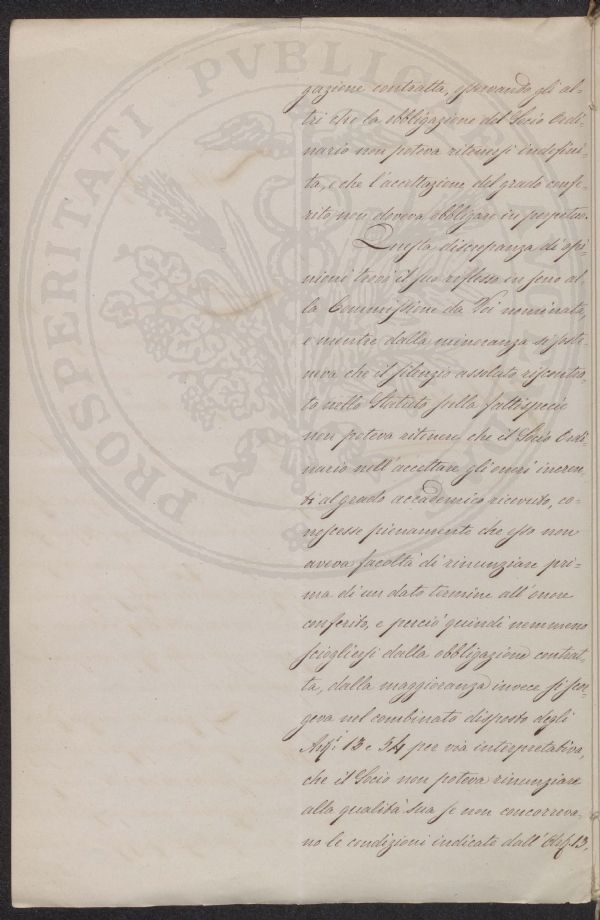 gazione contratta, osservando gli al-
tri che la obbligazione del Socio Ordi-
nario non poteva ritenersi indefini-
ta, e che l'accettazione del grado confe-
rito non doveva obbligare in perpetuo.
Questa discrepanza di opi-
nioni trovò il suo riflesso in seno al-
la Commissione da Voi nominata,
e mentre dalla minoranza si soste-
neva che il silenzio assoluto riscontra-
to nello Statuto sulla fattispecie
non poteva ritenere che il Socio Ordi-
nario nell'accettare gli oneri ineren-
ti al grado accademico ricevuto, co-
noscesse pienamente che esso non
aveva facoltà di rinunziare pri-
ma di un dato termine all'onore
conferito, e perciò quindi nemmeno
sciogliersi dalla obbligazione contrat-
ta, dalla maggioranza invece si scor-
geva nel combinato disposto degli
Arti. 13 e 54 per via interpretativa,
che il Socio non poteva rinunziare
alla qualità sua se non concorreva-
no le condizioni indicate dall'Art. 13,
PROSPERITATI PUBLICAE